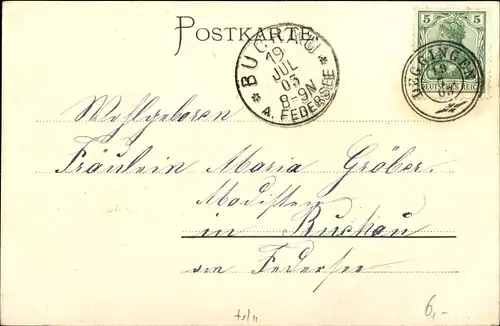 POSTKARTE
BUCHAU
19
JUL
03
8-9N
A. FEDERSEE
5 5
DEUTSCHES REICH
19
03
Wohlgeboren
Fräulein Maria Gröber
Modistin
in Buchau
am Federsee
6,-